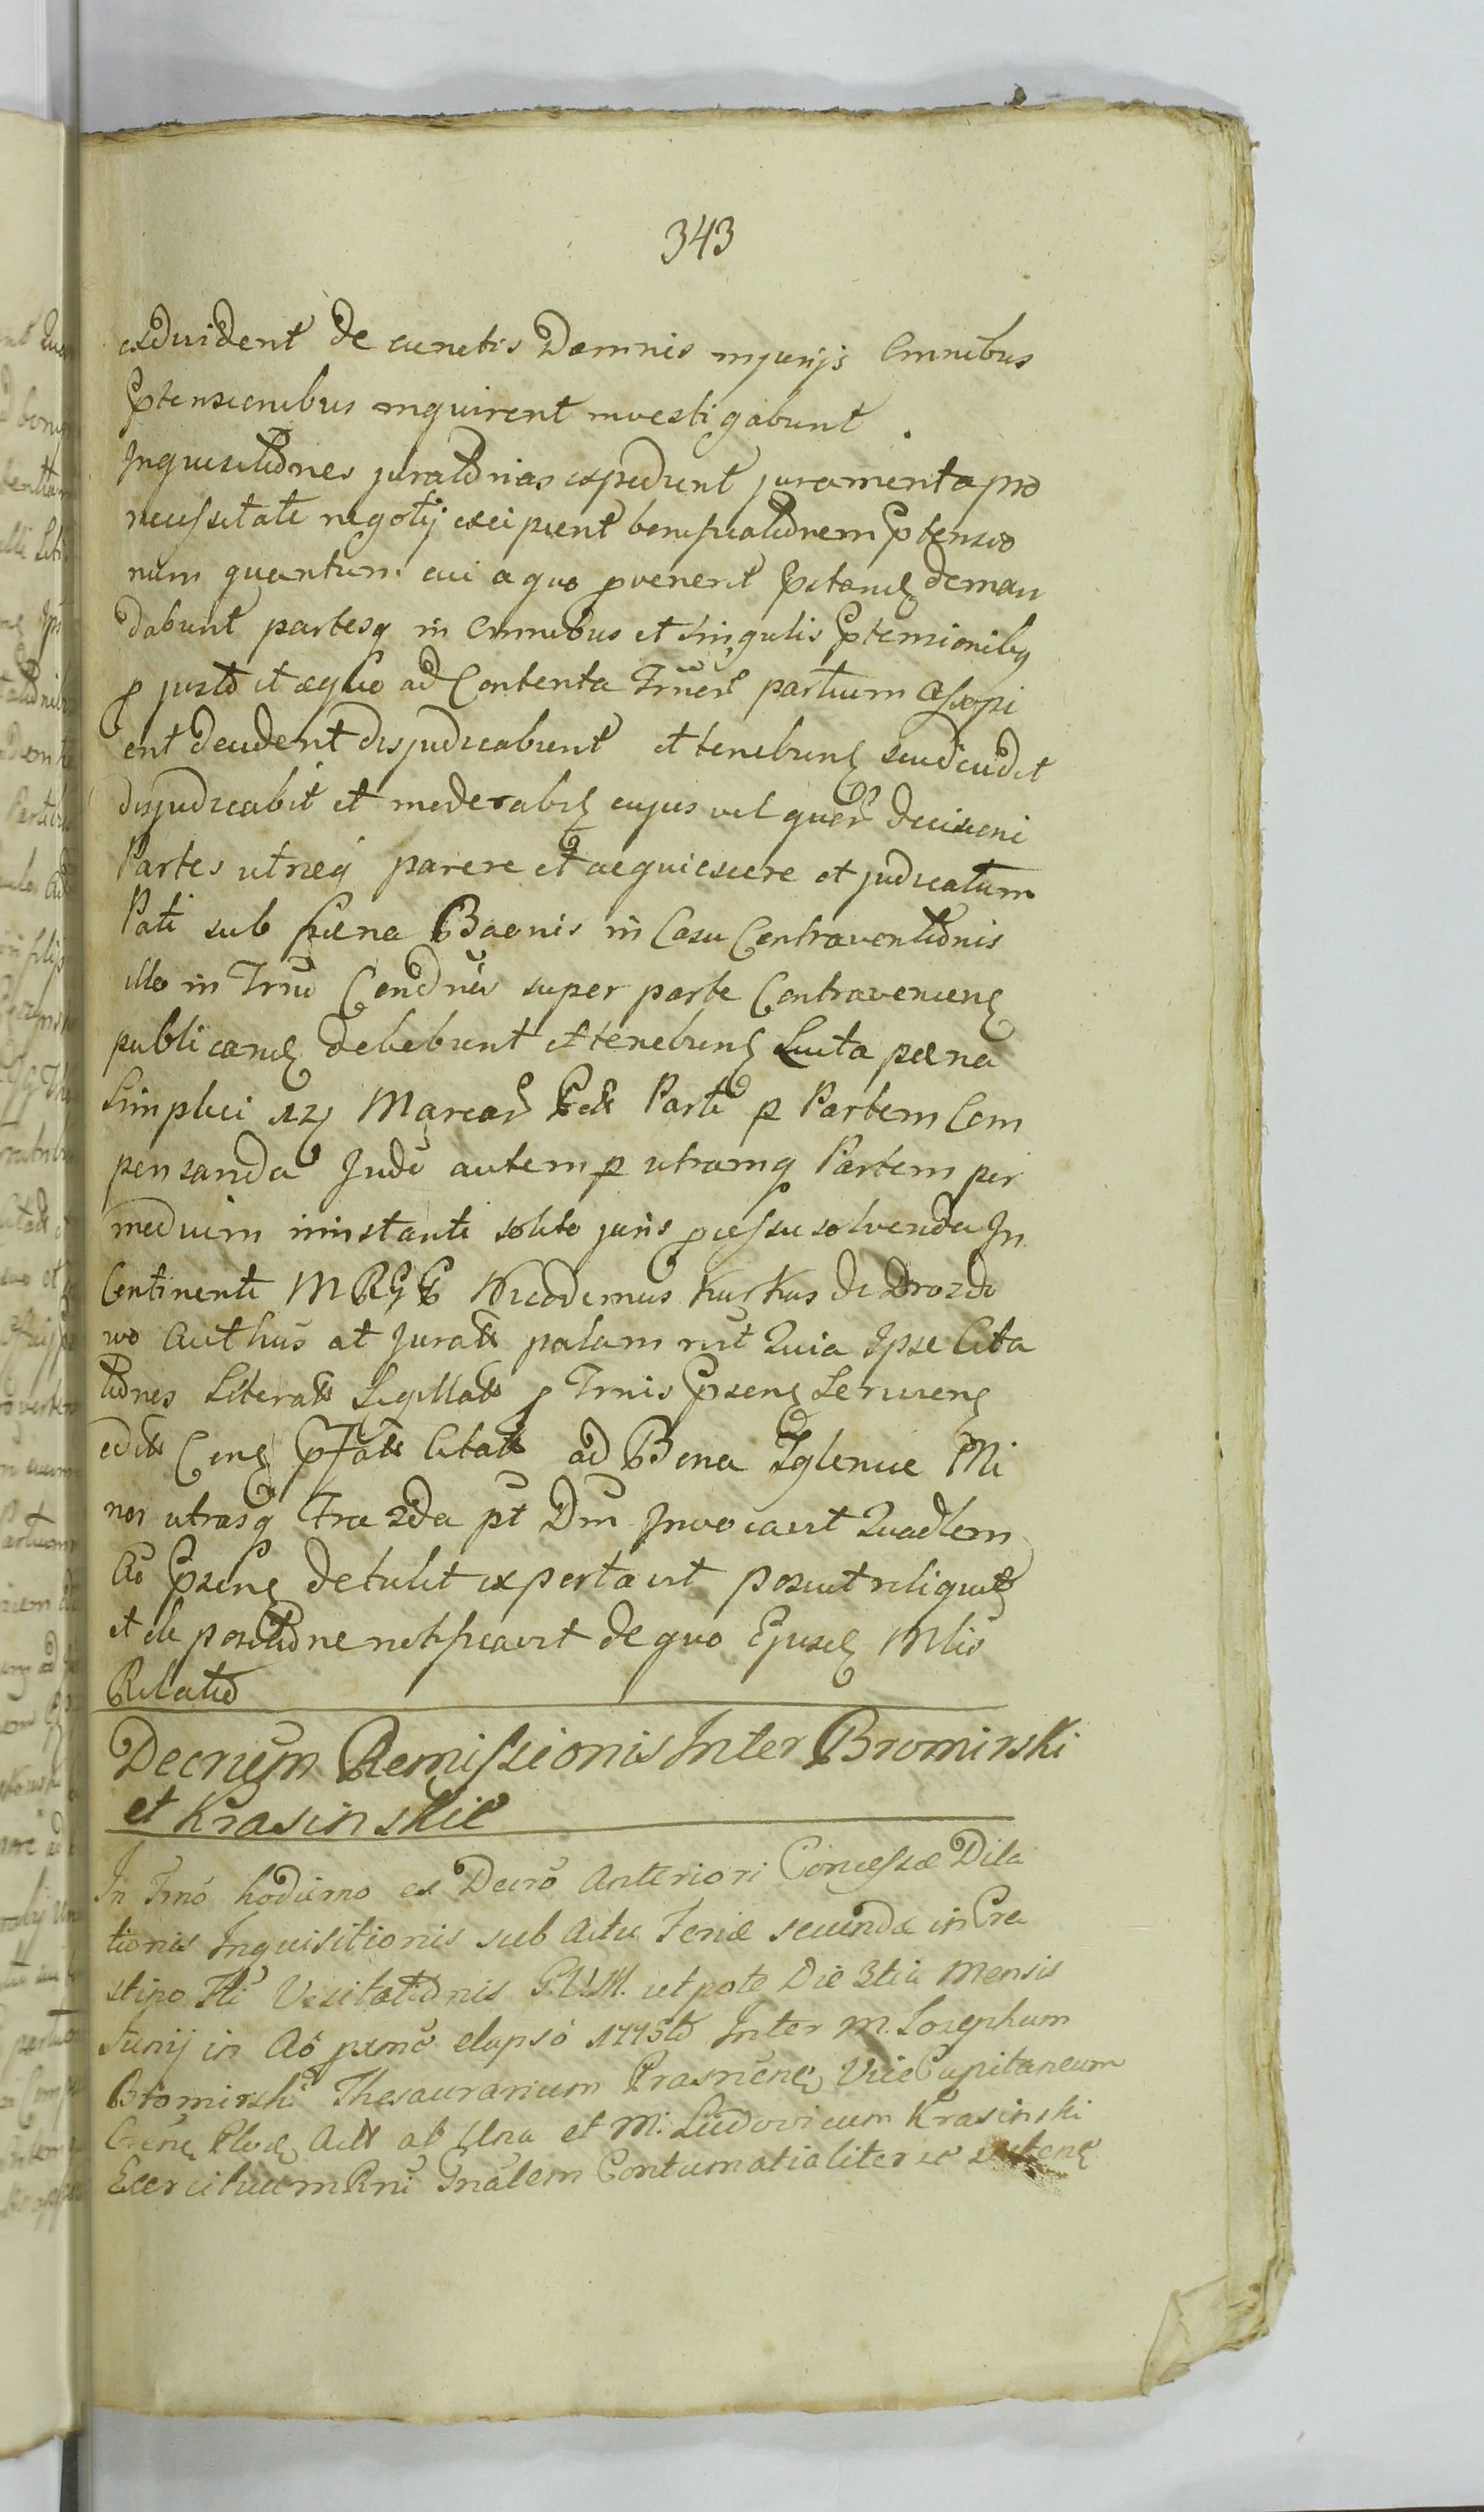 343
exdivident de cunctis Damnis injurijs Omnibus
Ptensionibus inquirent investigabunt.
Inquisitiones juratorias expedient juramenta pro
necessitate negotij excipient bonificationem Ptensio
num quantum cui a quo pvenerit Pstand deman
dabunt partesq in Omnibus et singulis Ptensionibq
p justo et æquo ad Contenta Trner partium Assopi
ent decident disjudicabunt et tenebunt seu decidet
disjudicabit et moderabit cujus vel quer decisioni
Partes utræq parere et acquiescere et judicatum
Pati sub pæna Bannis in Casu Contraventionis
illo in Trno Condno super parte Contraveniens
publicand debebunt et tenebunt Lucta pæna
Simplici 12j Marcar Parti p Partem Com
pensanda Judo autem p utramq Partem per
medium instanti solito juris pcessu solvenda In
Continenti MRGG Nicodemus Kuskus de Drozdo
wo Authus at Juratt palam rnt Quia Ipse Cita
tiones Literatt Sigillatt p Trnis Psens Serviens
editt Cens Pfatt Citatt ad Bona Iglenice Mi
nor utrasq Fra 2da pt Dm Invocavit Quadlem
Ao Psens detulit exportavit posuit reliquit
et de positione notificavit de quo Ejusd Mlis
Relatio
Decretum Remissionis Inter Bromirski
et Krasinskie
In Trno hodierno ex Decro Anteriori Concessæ Dila
tionis Inquisitionis sub Actu Feriæ secunda in Cra
stino Fti Visitationis B.V.M. utpote Die 3tia Mensis
Junij in Ao pxmo elapso 1775to Inter M. Josephum
Bromirski Thesaurarium Prasnens Vice Capitaneum
Plod Actt ab Una et M. Ludovicum Krasinski
Exercituum Rni Gnalem Contumatialiter